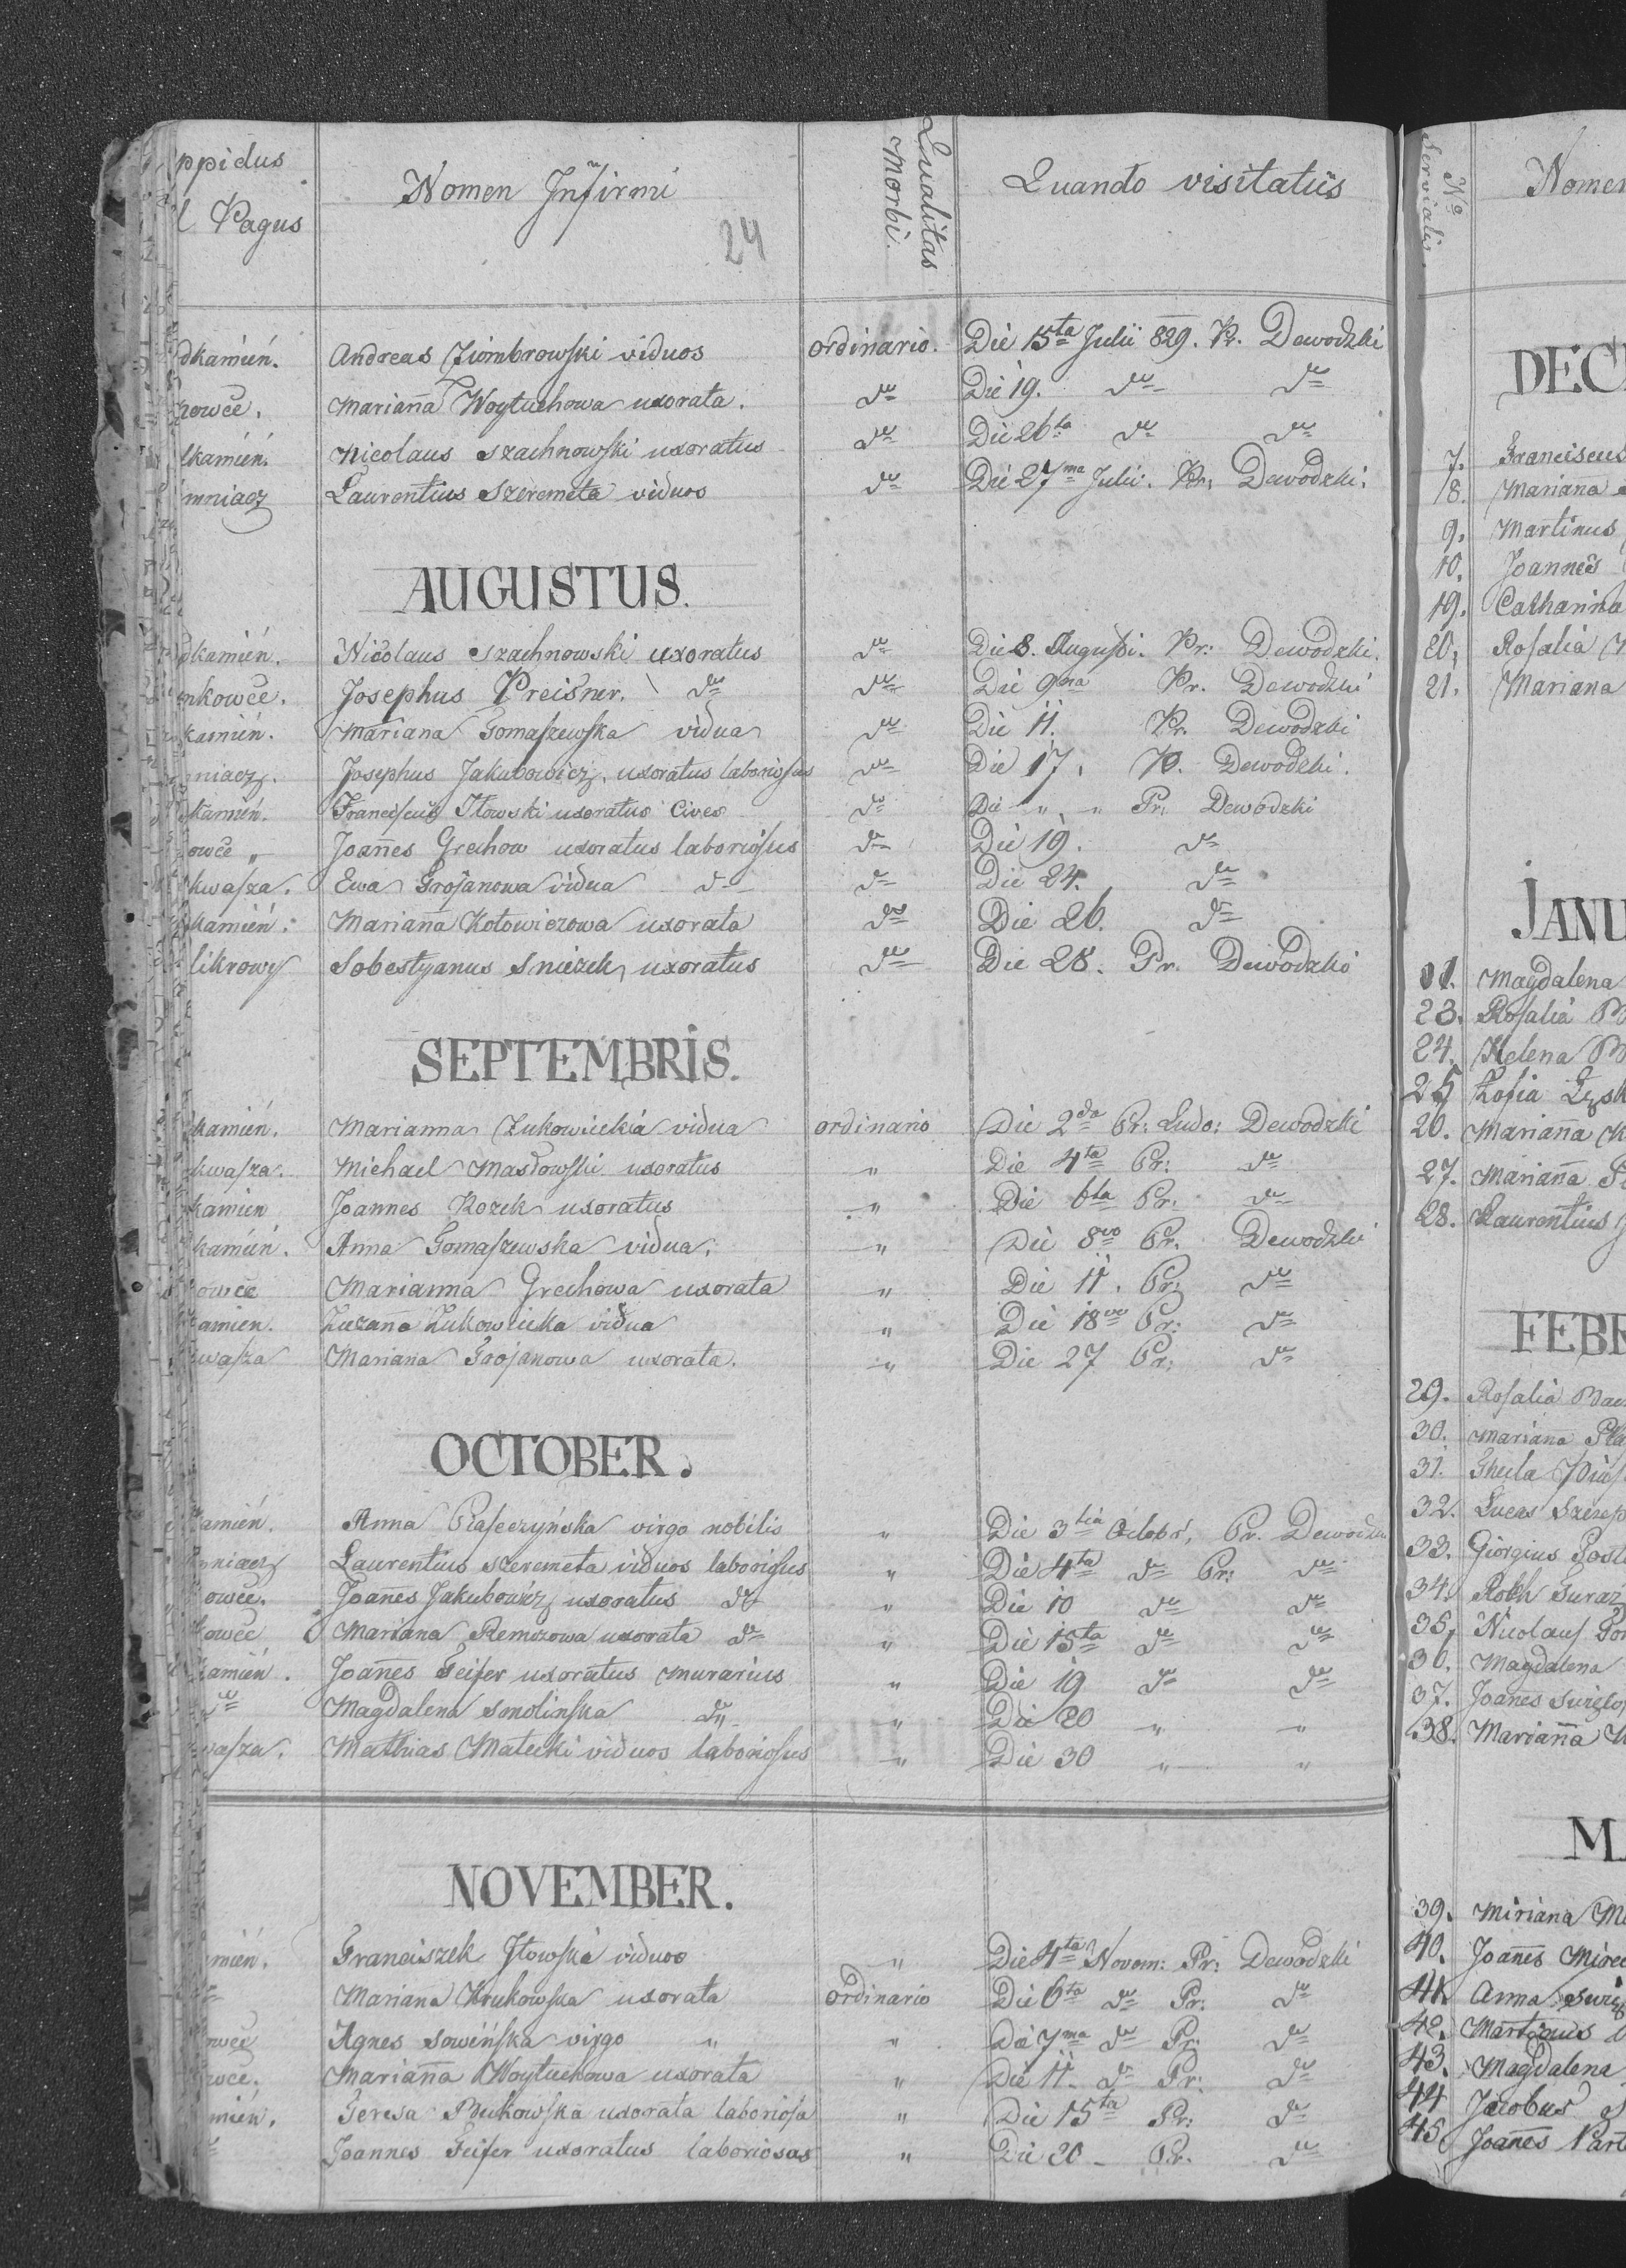 ppidus Nomen Infirmi Qualitas Morbi. Quando visitatus
l Pagus 24
dkamień. Andreas Ziombrowski viduos ordinario. Die 15ta Julii 829. Pr. Dewodzki
zowce. Marianna Woytuchowa uxorata. dto Die 19. dto dto
lkamień. Nicolaus Szachnowski uxoratus dto Die 26ta dto dto
mniacz Laurentius Szeremeta viduos dto Die 27ma Julii. Pr. Dewodzki.
AUGUSTUS.
dkamień. Nicolaus Szachnowski uxoratus dto Die 8. Augusti. Pr: Dewodzki.
nkowce. Josephus Preisner. dto dto Die 9na Pr. Dewodzki
kamień. Mariana Tomaszewska vidua dto Die 11. Pr. Dewodzki
niacz. Josephus Jakubowicz, uxoratus laboriosus dto Die 17. Pr. Dewodzki.
kamień. Franciscus Iłowski uxoratus Cives dto Die " " Pr: Dewodzki
owce " Joañes Grechow uxoratus laboriosus dto Die 19. dto
kwasza. Ewa Trojanowa vidua dto dto Die 24. dto
kamień. Mariaña Kotowiczowa uxorata dto Die 26. dto
likrowy Sobestyanus Sniezek uxoratus dto Die 28. Pr. Dewodzki
SEPTEMBRIS.
kamień. Marianna Zukowickia vidua ordinario Die 2da Pr: Ludo: Dewodzki
kwasza. Michael Masłowski uxoratus " Die 4ta Pr: dto
kamien Joannes Kozek uxoratus " Die 6ta Pr: dto
kamień. Anna Tomaszewska vidua. " Die 8vo Pr. Dewodzki
owce Marianna Grechowa uxorata " Die 11. Pr: dto
amien. Zuzaña Zukowicka vidua " Die 18vo Pr: dto
wasza Mariana Trojanowa uxorata. " Die 27 Pr: dto
OCTOBER.
amień. Anna Piaseczyńska virgo nobilis " Die 3tia Octobr, Pr. Dewodzki
niacz Laurentius Szeremeta viduos laboriosus " Die 4ta dto Pr: dto
owce. Joañes Jakubowicz uxoratus dto " Die 10 dto dto
kowce Mariana Remozowa uxorata dto " Die 15ta dto dto
kamień. Joañes Feifer uxoratus murarius " Die 19 dto dto
dto Magdalena Smolinska dto " Die 20 " "
wasza. Mathias Matecki viduos laboriosus " Die 30 " "
NOVEMBER.
mień. Franciszek Iłowski viduos " Die 4ta Novem: Pr: Dewodzki
Mariana Krukowska uxorata ordinario Die 6ta dto Pr: dto
owce Agnes Sowińska virgo " " Die 7ma dto Pr: dto
zwce. Mariaña Woytuchowa uxorata " Die 11. dto Pr: dto
mień. Teresa Bukowska uxorata laboriosa " Die 15ta Pr: dto
Joannes Feifer uxoratus laboriosas " Die 20 - Pr. dto
No Servialis. Nomen
DEC
7. Franciscus
8. Mariaña
9. Martinus
10. Joannes
19. Catharina
20. Rosalia
21. Mariana
JANU
Magdalena
23. Rosalia
24. Helena
25 Zofia
26. Mariaña
27. Mariaña
28. Laurentius
FEBR
29. Rosalia
30. Mariana
31. Thecla
32. Lucas
33. Giorgius
34. Roch
35. Nicolaus
36. Magdalena
37. Joañes
38. Mariaña
M
39. Miriana
40. Joañes
41. Anna
42. Martinus
43. Magdalena
44 Jacobus
45 Joañes